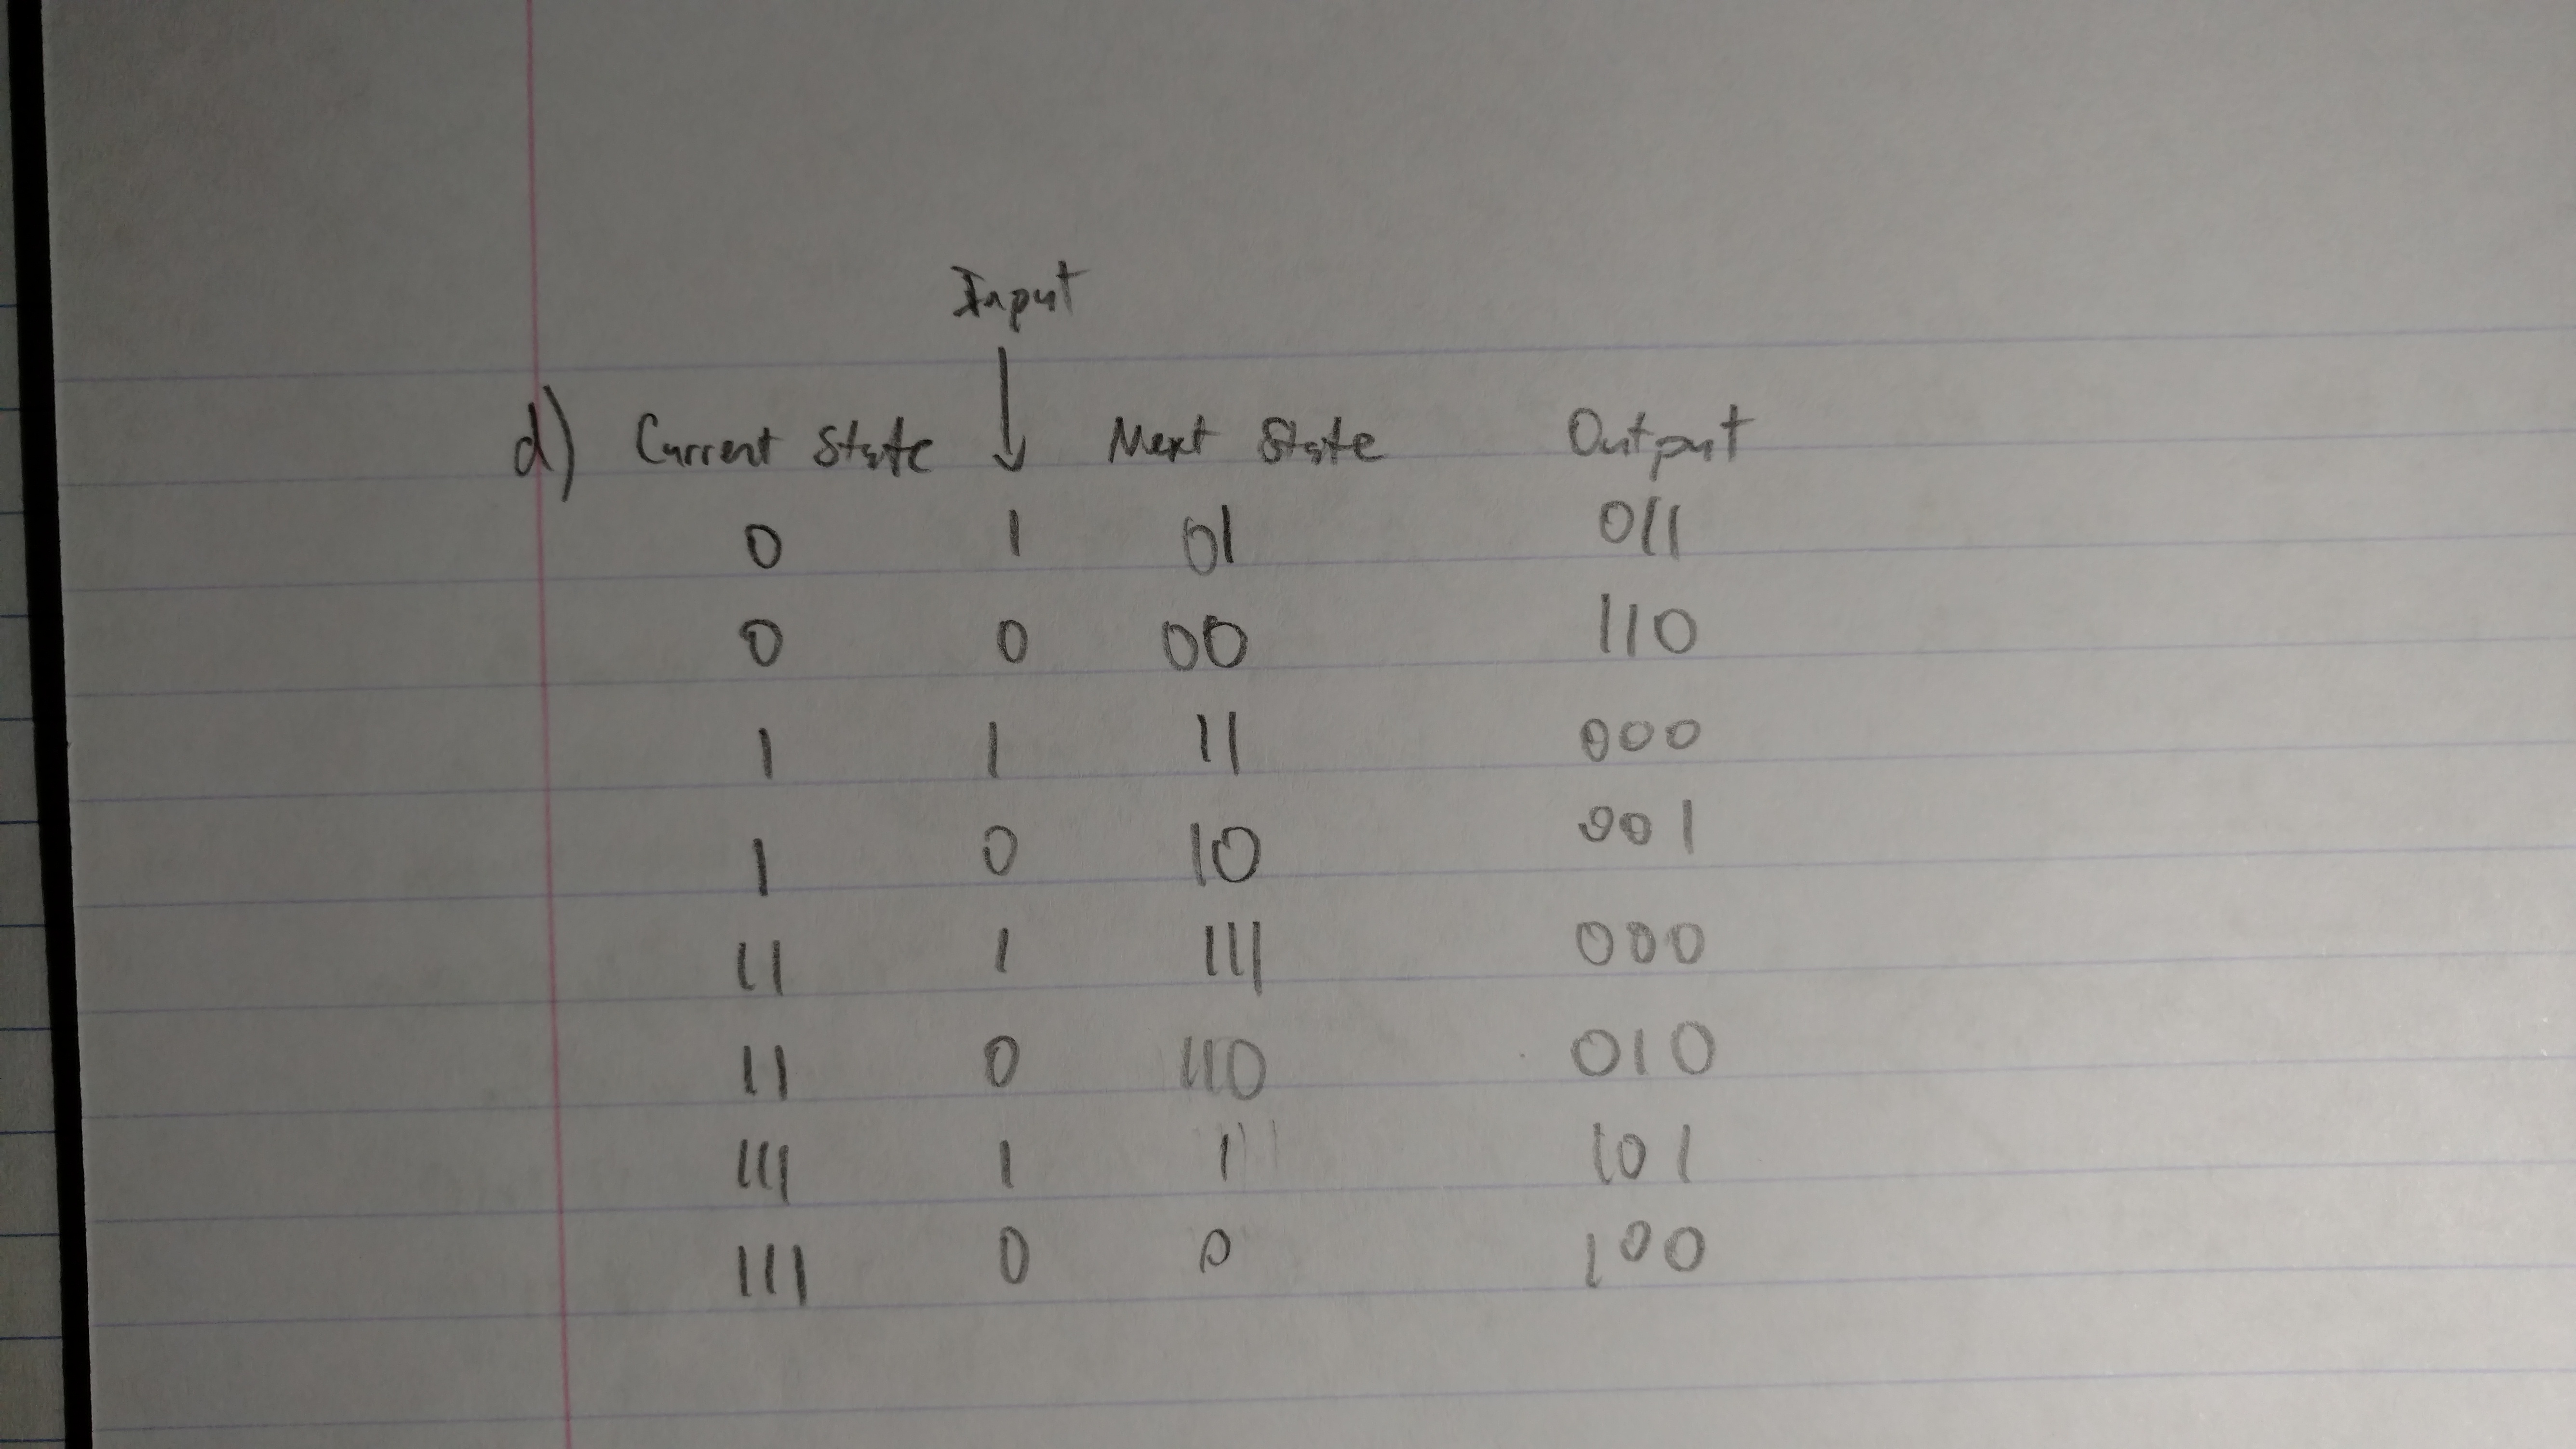 Input
↓
d) Current State Next State Output
0 1 01 011
0 0 00 110
1 1 11 000
1 0 10 001
11 1 111 000
11 0 110 010
111 1 1 101
111 0 0 100